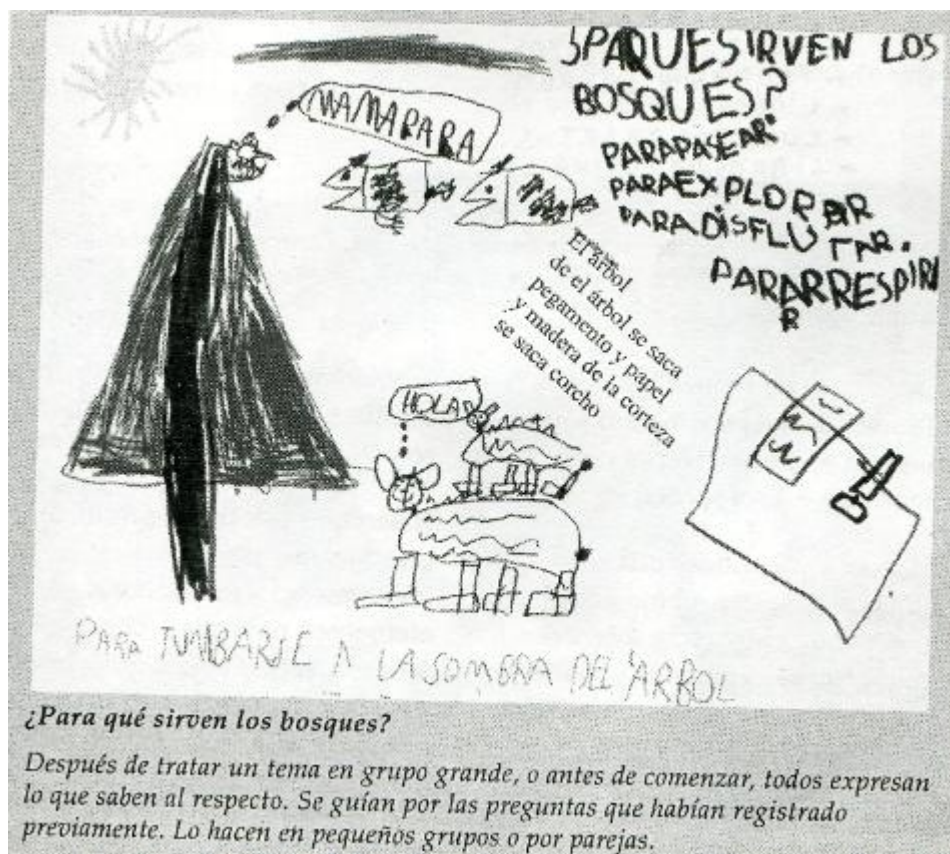 ¿PAQUESIRVEN LOS
BOSQUES?
PARAPASEAR
PARAEXPLORAR
PARADISFLUTAR.
PARARRESPIRAR
MAMAPARA
El árbol
de el árbol se saca
pegamento y papel
y madera de la corteza
se saca corcho
HOLA
PARA TUMBARSE A LA SOMBRA DEL ARBOL
¿Para qué sirven los bosques?
Después de tratar un tema en grupo grande, o antes de comenzar, todos expresan
lo que saben al respecto. Se guían por las preguntas que habían registrado
previamente. Lo hacen en pequeños grupos o por parejas.